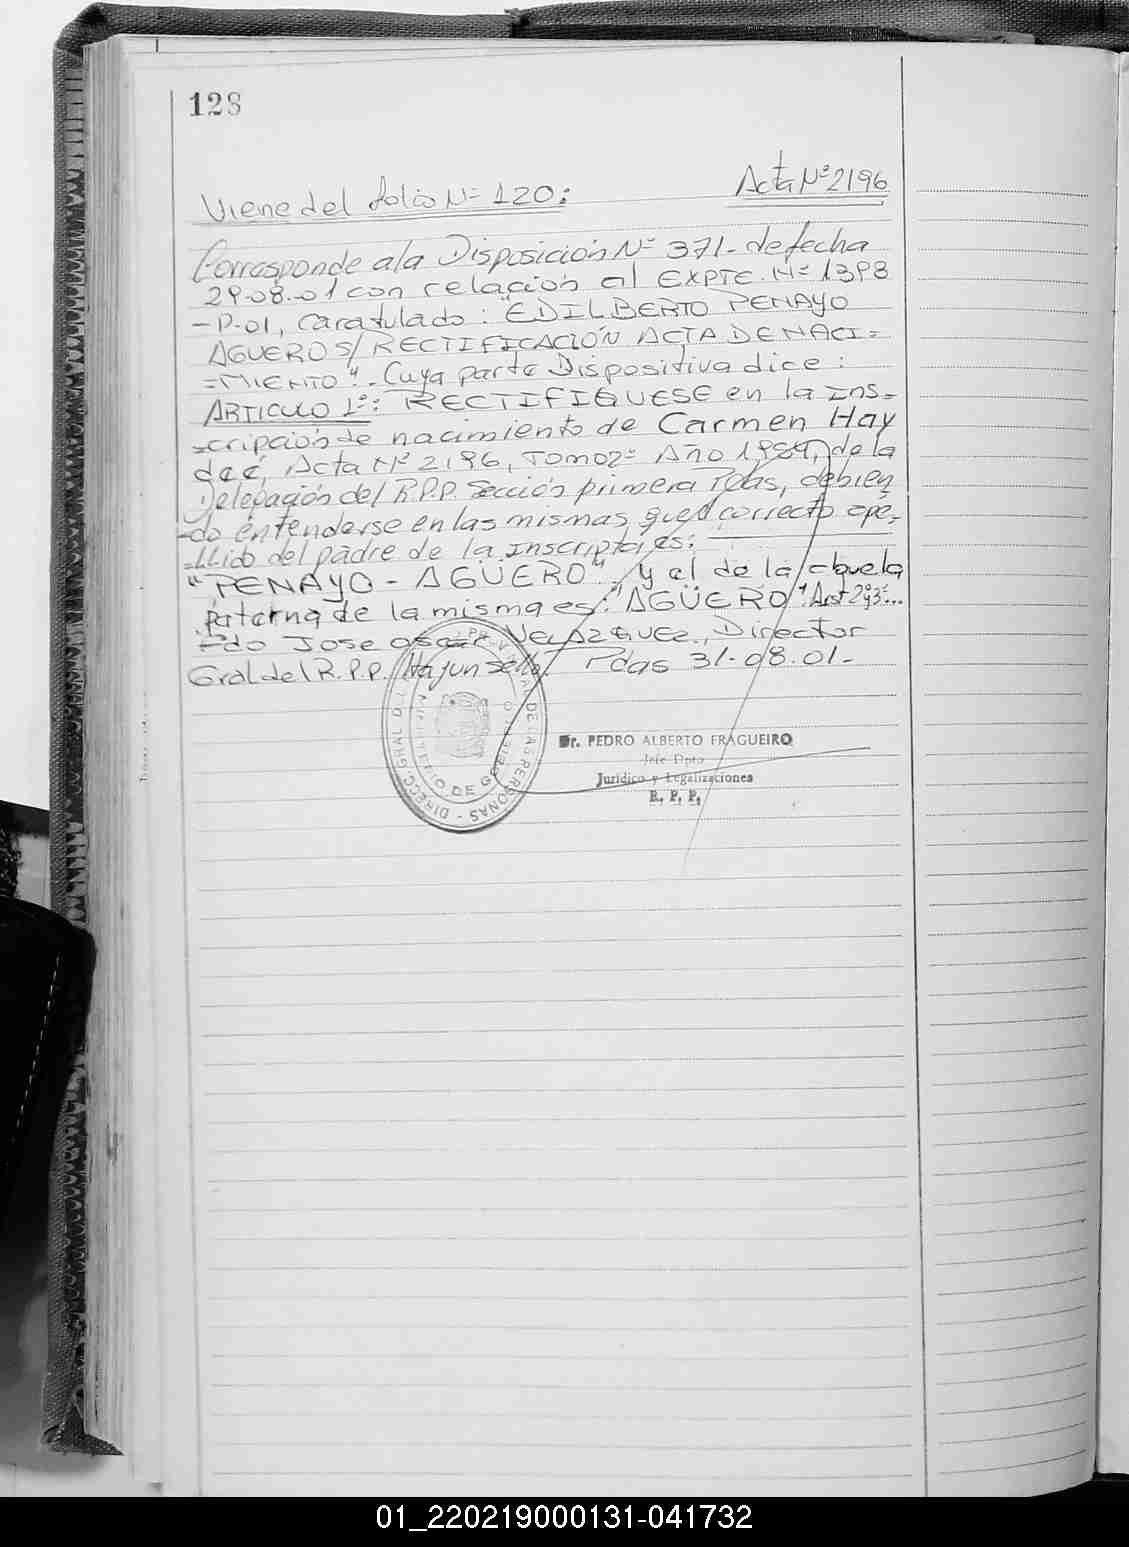 128
Viene del folio Nº 120:
Acta Nº 2196
Corresponde a la Disposición Nº 371- de fecha
29-08-01 con relación al EXPTE. Nº 1398
-P-01, caratulado: "EDILBERTO PENAYO
AGUEROS/RECTIFICACIÓN ACTA DE NACI=
=MIENTO". Cuya parte Dispositiva dice:
ARTICULO 1º: RECTIFIQUESE en la Ins=
=cripción de nacimiento de Carmen Hay
deé, Acta Nº 2196, Tomo 2º Año, de la
Delegación del R.P.P. Sección primera Pdas, debien
-do entenderse en las mismas que el correcto ape=
=llido del padre de la inscripta es:
"PENAYO - AGÜERO", y el de la abuela
paterna de la misma es: "AGÜERO". Art 2º y 3º...
Fdo Jose Oscar VELAZQUEZ., Director
Gral del R.P.P./Hay un sello/. Pdas 31-08-01-
DIRECC. GRAL. DEL R. PROVINCIAL DE LAS PERSONAS -
MINISTERIO DE GOBIERNO
Dr. PEDRO ALBERTO FRAGUEIRO
Jefe Dpto
Jurídico y Legalizaciones
R. P. P.
01_220219000131-041732